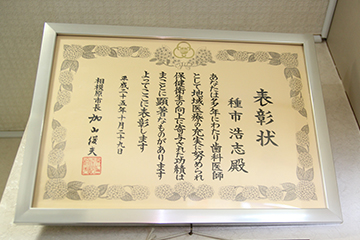 表彰状
種市 浩志殿
あなたは多年にわたり歯科医師
として地域医療の充実に努められ
保健衛生の向上に寄与された功績は
まことに顕著なものがあります
よってここに表彰します
平成二十五年十月二十九日
相模原市長 加山俊夫